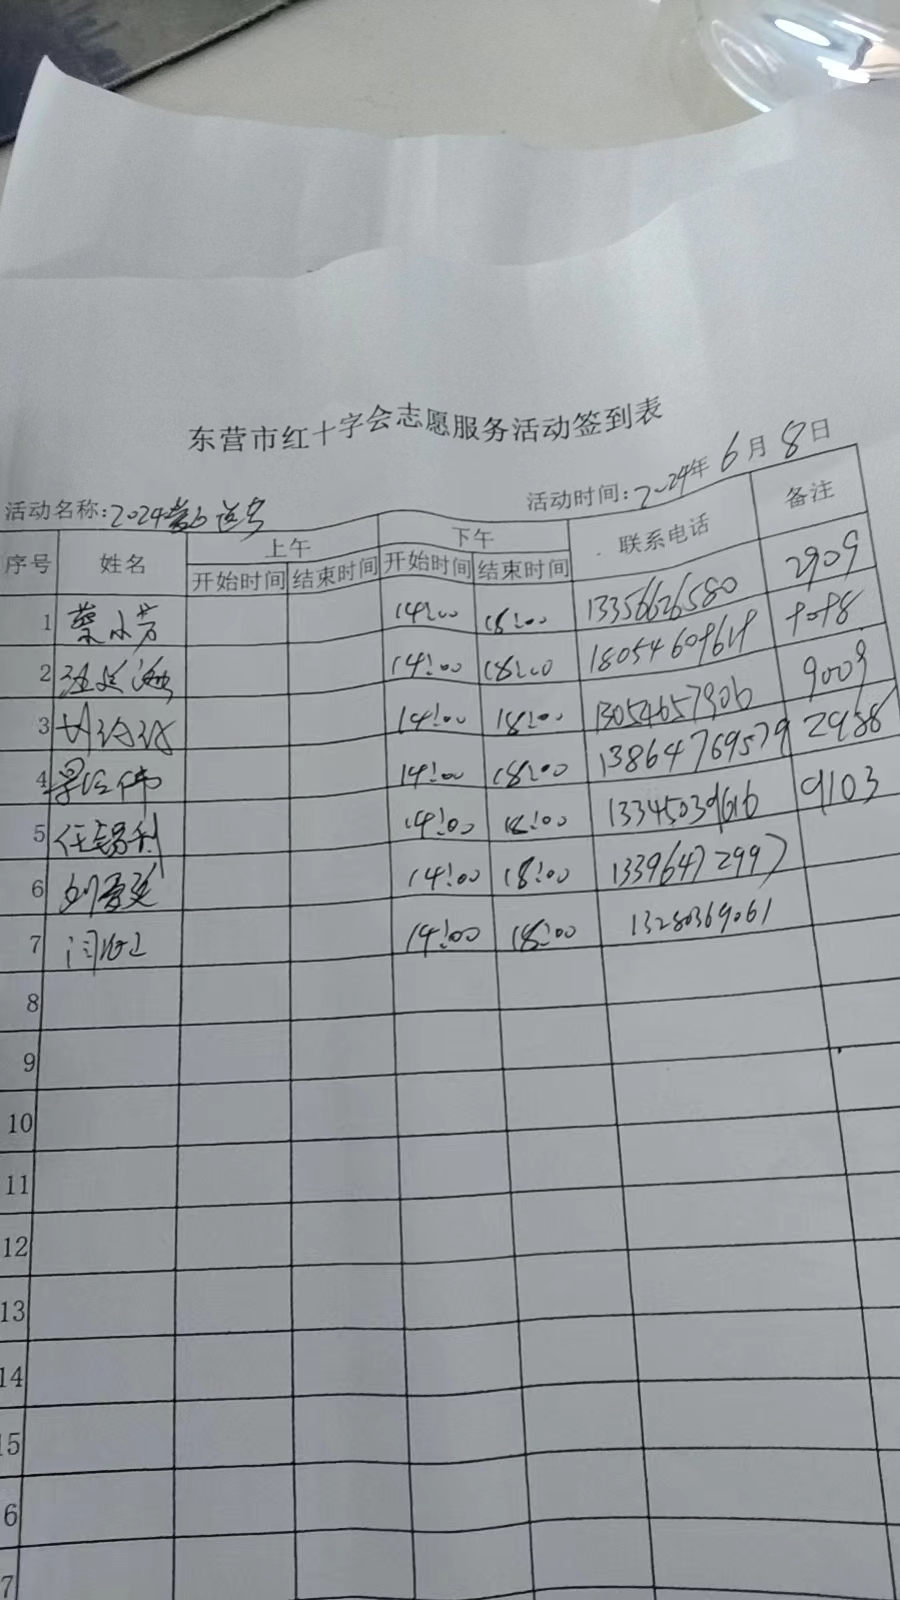 东营市红十字会志愿服务活动签到表
活动名称:2024 活动时间:2024年6月8日
序号 姓名 上午 下午 联系电话 备注
开始时间 结束时间 开始时间 结束时间
1 蔡小芳 14:00 18:00 13356626580 2909
2 14:00 18:00
3 14:00 18:00 13054657906 9009
4 14:00 18:00 13864769579 2988
5 任锡利 14:00 18:00 13345039616 9103
6 刘爱英 14:00 18:00 13396472997
7 14:00 18:00 13280369061
8
9
10
11
12
13
14
15
6
7